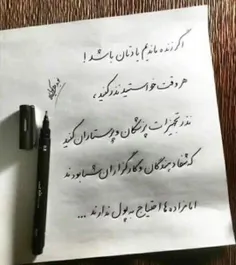 اگر زنده ماندیم یادتان باشد !
هر وقت خواستید نذر کنید ،
نذر تجهیزات پزشکان و پرستاران کنید
که شفادهندگان و کارگزاران شما بودند
امامزاده ها احتیاج به پول ندارند ...